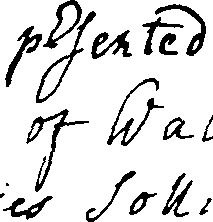 presented
of Wal
es Soll